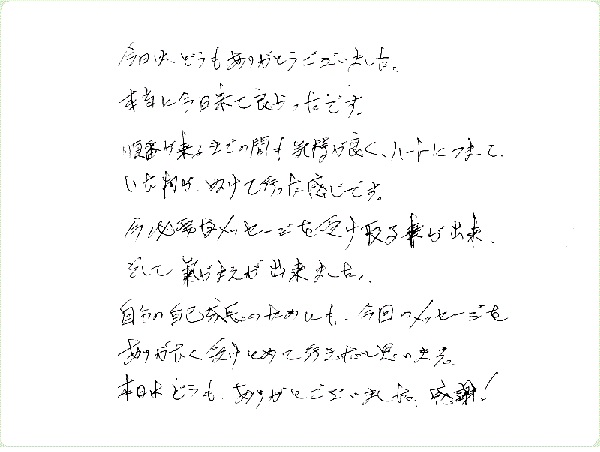 今日は、どうもありがとうございました。
本当に今日来て良かったです。
順番が来るまでの間も気持が良く、ハートにつまって、
いた物が、ぬけて行った感じです。
今、必要なメッセージを受け取る事が出来、
そして氣づきが出来ました。
自分の自己成長のためにも、今回のメッセージを
ありがたく受けとめて行きたいと思います。
本日は、どうも、ありがとございました。感謝!